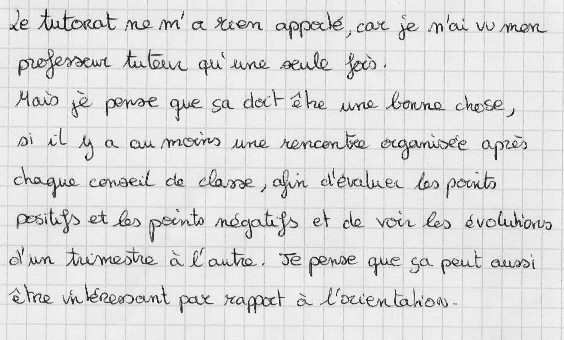 Le tutorat ne m'a rien apporté, car je n'ai vu mon
professeur tuteur qu'une seule fois.
Mais je pense que sa doit être une bonne chose,
si il y a au moins une rencontre organisée après
chaque conseil de classe, afin d'évaluer les points
positifs et les points négatifs et de voir les évolutions
d'un trimestre à l'autre. Je pense que ça peut aussi
être intéressant par rapport à l'orientation.